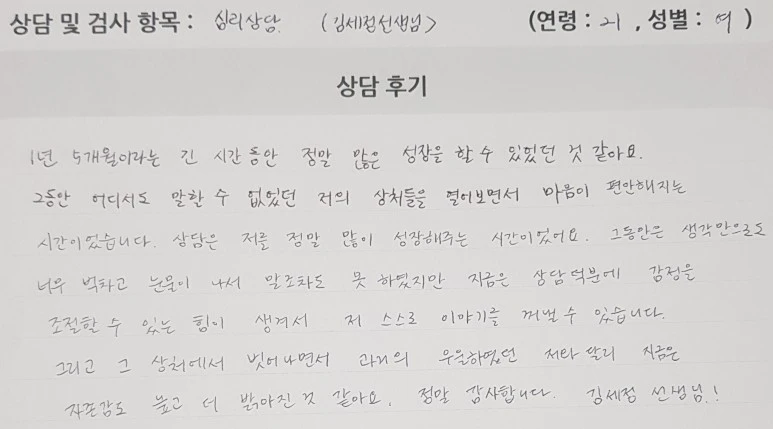 상담 및 검사 항목 : 심리상담 (김세정선생님) (연령 : 21, 성별 : 여)
상담 후기
1년 5개월이라는 긴 시간동안 정말 많은 성장을 할 수 있었던 것 같아요.
그동안 어디서도 말할 수 없었던 저의 상처들을 열어보면서 마음이 편안해지는
시간이었습니다. 상담은 저를 정말 많이 성장해주는 시간이었어요. 그동안은 생각만으로도
너무 벅차고 눈물이 나서 말조차도 못 하였지만 지금은 상담덕분에 감정을
조절할 수 있는 힘이 생겨서 저 스스로 이야기를 꺼낼 수 있습니다.
그리고 그 상처에서 벗어나면서 과거의 우울하였던 저와 달리 지금은
자존감도 높고 더 밝아진 것 같아요. 정말 감사합니다. 김세정 선생님!